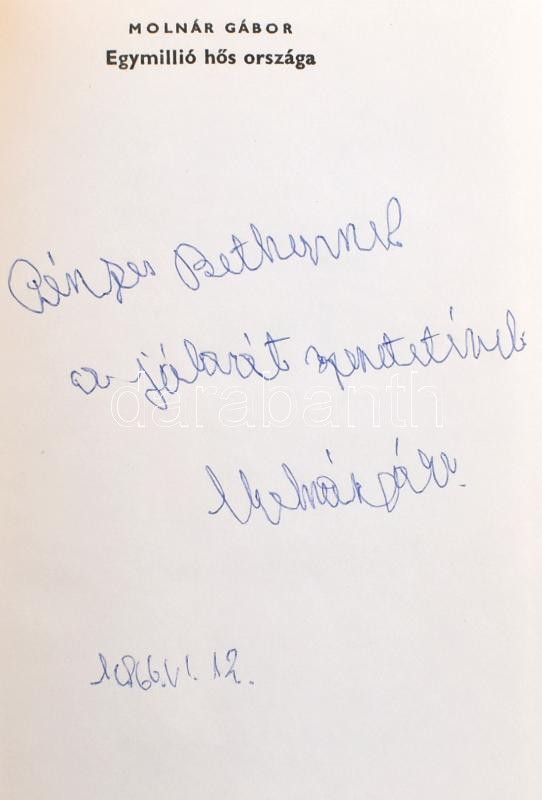 MOLNÁR GÁBOR
Egymillió hős országa
Pénzes Bethennek
a jóbarát szeretetével
darabanth
Molnár Gábor
1966.VI.12.